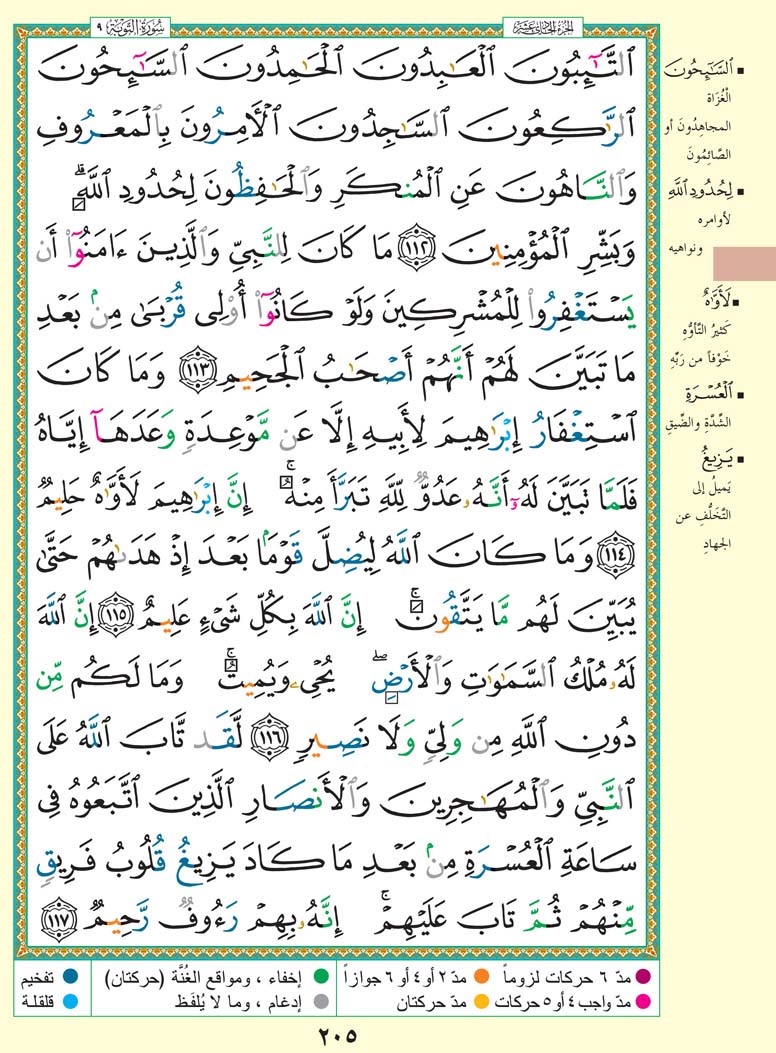 الجزء الحادي عشر
سورة التوبة ٩
ٱلتَّـٰٓئِبُونَ ٱلۡعَـٰبِدُونَ ٱلۡحَـٰمِدُونَ ٱلسَّـٰٓئِحُونَ
ٱلرَّٰكِعُونَ ٱلسَّـٰجِدُونَ ٱلۡأٓمِرُونَ بِٱلۡمَعۡرُوفِ
وَٱلنَّاهُونَ عَنِ ٱلۡمُنكَرِ وَٱلۡحَـٰفِظُونَ لِحُدُودِ ٱللَّهِۗ
وَبَشِّرِ ٱلۡمُؤۡمِنِينَ ١١٢ مَا كَانَ لِلنَّبِيِّ وَٱلَّذِينَ ءَامَنُوٓاْ أَن
يَسۡتَغۡفِرُواْ لِلۡمُشۡرِكِينَ وَلَوۡ كَانُوٓاْ أُوْلِي قُرۡبَىٰ مِنۢ بَعۡدِ
مَا تَبَيَّنَ لَهُمۡ أَنَّهُمۡ أَصۡحَـٰبُ ٱلۡجَحِيمِ ١١٣ وَمَا كَانَ
ٱسۡتِغۡفَارُ إِبۡرَٰهِيمَ لِأَبِيهِ إِلَّا عَن مَّوۡعِدَةٖ وَعَدَهَآ إِيَّاهُ
فَلَمَّا تَبَيَّنَ لَهُۥٓ أَنَّهُۥ عَدُوّٞ لِّلَّهِ تَبَرَّأَ مِنۡهُۚ إِنَّ إِبۡرَٰهِيمَ لَأَوَّٰهٌ حَلِيمٞ
١١٤ وَمَا كَانَ ٱللَّهُ لِيُضِلَّ قَوۡمَۢا بَعۡدَ إِذۡ هَدَىٰهُمۡ حَتَّىٰ
يُبَيِّنَ لَهُم مَّا يَتَّقُونَۚ إِنَّ ٱللَّهَ بِكُلِّ شَيۡءٍ عَلِيمٌ ١١٥ إِنَّ ٱللَّهَ
لَهُۥ مُلۡكُ ٱلسَّمَـٰوَٰتِ وَٱلۡأَرۡضِۖ يُحۡيِۦ وَيُمِيتُۚ وَمَا لَكُم مِّن
دُونِ ٱللَّهِ مِن وَلِيّٖ وَلَا نَصِيرٖ ١١٦ لَّقَد تَّابَ ٱللَّهُ عَلَى
ٱلنَّبِيِّ وَٱلۡمُهَـٰجِرِينَ وَٱلۡأَنصَارِ ٱلَّذِينَ ٱتَّبَعُوهُ فِي
سَاعَةِ ٱلۡعُسۡرَةِ مِنۢ بَعۡدِ مَا كَادَ يَزِيغُ قُلُوبُ فَرِيقٖ
مِّنۡهُمۡ ثُمَّ تَابَ عَلَيۡهِمۡۚ إِنَّهُۥ بِهِمۡ رَءُوفٞ رَّحِيمٞ ١١٧
السَّـٰٓئِحُونَ
الْغُزَاة
المجاهِدُونَ أو
الصَّائِمُونَ
لِحُدُودِ اللَّهِ
لأوامره
ونواهيه
لَأَوَّٰهٌ
كَثيرُ التَّأَوُّهِ
خَوْفاً من رَبِّهِ
الْعُسْرَةِ
الشِّدَّةِ والضِّيقِ
يَزِيغُ
يَميلُ إلى
التَّخَلُّفِ عن
الجهادِ
مدّ ٦ حركات لزوماً
مدّ ٢ أو ٤ أو ٦ جوازاً
إخفاء ، ومواقع الغُنَّة (حركتان)
تفخيم
مدّ واجب ٤ أو ٥ حركات
مدّ حركتان
إدغام ، وما لا يُلفَظ
قلقلة
٢٠٥